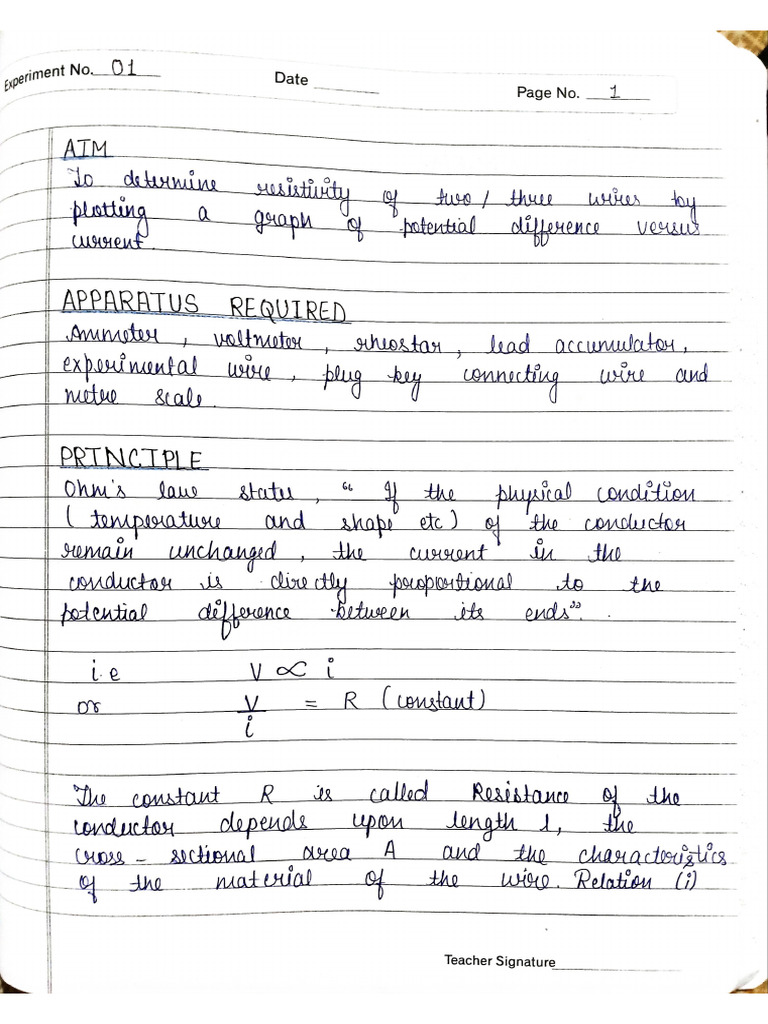 Experiment No. 01 Date Page No. 1
AIM
To determine resistivity of two / three wires by
plotting a graph of potential difference versus
current.
APPARATUS REQUIRED
Ammeter , voltmeter , rheostar , lead accumulator ,
experimental wire , plug key connecting wire and
metre scale.
PRINCIPLE
Ohm's law states , " If the physical condition
( temperature and shape etc ) of the conductor
remain unchanged , the current in the
conductor is directly proportional to the
potential difference between its ends".
i.e V ∝ i
or V/i = R (constant)
The constant R is called Resistance of the
conductor depends upon length l, the
cross - sectional area A and the characteristics
of the material of the wire. Relation (i)
Teacher Signature